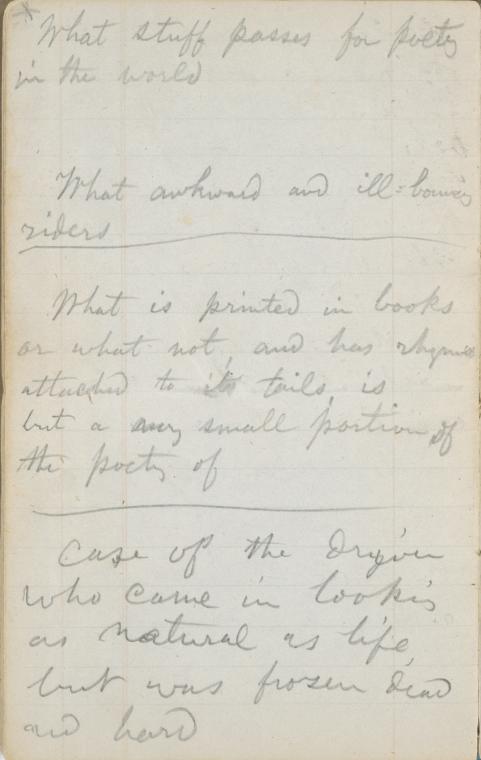 * What stuff passes for poetry
in the world
What awkward and ill-bouncing
riders
What is printed in books
or what not, and has rhymes
attached to its tails, is
but a very small portion of
the poetry of
Case of the driver
who came in looking
as natural as life,
but was frozen dead
and hard